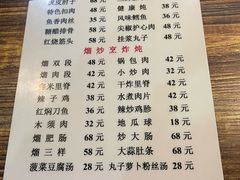 特色扣肉 48元 风味鳕鱼 48元
鱼香肉丝 32元 尖椒护心肉 48元
糖醋排骨 58元 挂浆丸子 38元
红烧筋头 58元
熘炒烹炸炖
熘双段 48元 锅包肉 42元
熘肉段 42元 小炒肉 32元
32元 干炸里脊 42元
辣子鸡 38元 水煮肉片 42元
红焖刀鱼 36元 辣炒鸡胗 38元
木须肉 32元 地瓜球 18元
熘肥肠 68元 炒大肠 68元
熘三样 58元 大蒜肚条 68元
菠菜豆腐汤 28元 丸子萝卜粉丝汤 28元